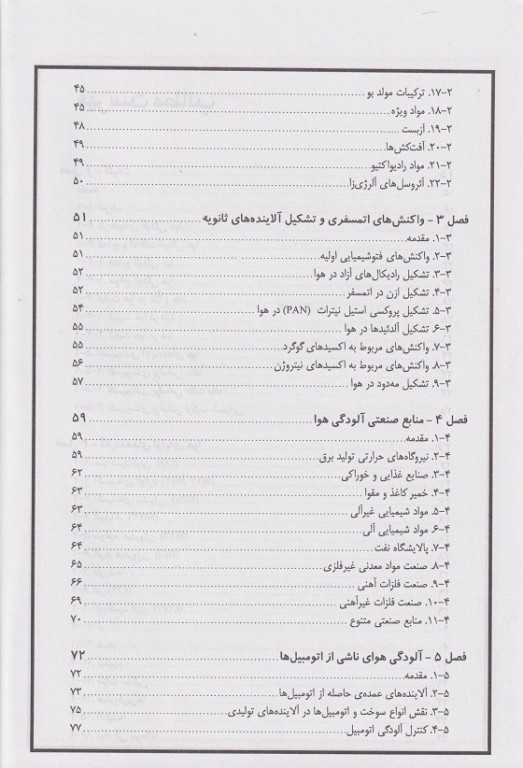 ۱۷-۲. ترکیبات مولد بو ۴۵
۱۸-۲. مواد ویژه ۴۵
۱۹-۲. آزبست ۴۸
۲۰-۲. آفت‌کش‌ها ۴۹
۲۱-۲. مواد رادیواکتیو ۴۹
۲۲-۲. آئروسل‌های آلرژی‌زا ۵۰
فصل ۳ - واکنش‌های اتمسفری و تشکیل آلاینده‌های ثانویه ۵۱
۱-۳. مقدمه ۵۱
۲-۳. واکنش‌های فتوشیمیایی اولیه ۵۱
۳-۳. تشکیل رادیکال‌های آزاد در هوا ۵۲
۴-۳. تشکیل ازن در اتمسفر ۵۲
۵-۳. تشکیل پروکسی استیل نیترات (PAN) در هوا ۵۴
۶-۳. تشکیل آلدئیدها در هوا ۵۵
۷-۳. واکنش‌های مربوط به اکسیدهای گوگرد ۵۵
۸-۳. واکنش‌های مربوط به اکسیدهای نیتروژن ۵۶
۹-۳. تشکیل مه‌دود در هوا ۵۷
فصل ۴ - منابع صنعتی آلودگی هوا ۵۹
۱-۴. مقدمه ۵۹
۲-۴. نیروگاه‌های حرارتی تولید برق ۵۹
۳-۴. صنایع غذایی و خوراکی ۶۲
۴-۴. خمیر کاغذ و مقوا ۶۳
۵-۴. مواد شیمیایی غیرآلی ۶۳
۶-۴. مواد شیمیایی آلی ۶۴
۷-۴. پالایشگاه نفت ۶۴
۸-۴. صنعت مواد معدنی غیرفلزی ۶۵
۹-۴. صنعت فلزات آهنی ۶۶
۱۰-۴. صنعت فلزات غیرآهنی ۶۹
۱۱-۴. منابع صنعتی متنوع ۷۰
فصل ۵ - آلودگی هوای ناشی از اتومبیل‌ها ۷۲
۱-۵. مقدمه ۷۲
۲-۵. آلاینده‌های عمده‌ی حاصله از اتومبیل‌ها ۷۳
۳-۵. نقش انواع سوخت و اتومبیل‌ها در آلاینده‌های تولیدی ۷۵
۴-۵. کنترل آلودگی اتومبیل ۷۷